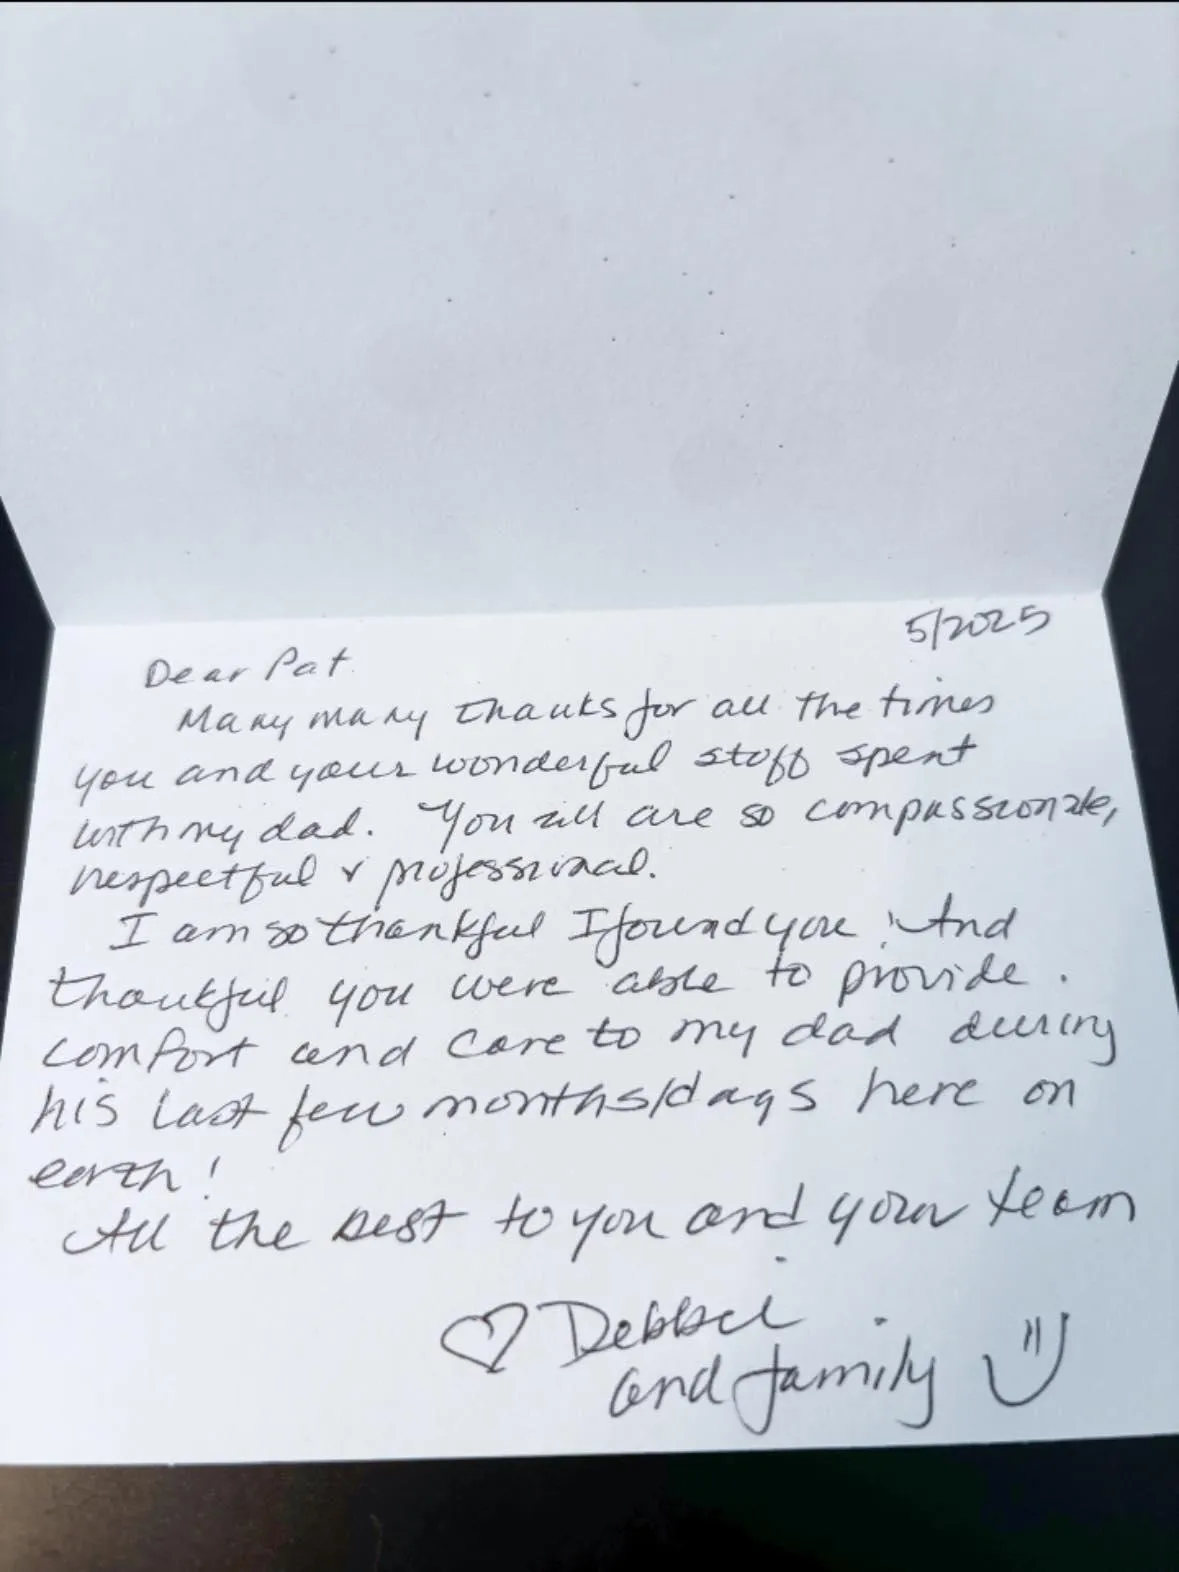 5/2025
Dear Pat
Many many thanks for all the times
you and your wonderful staff spent
with my dad. You all are so compassionate,
respectful & professional.
I am so thankful I found you! And
thankful you were able to provide
comfort and care to my dad during
his last few months/days here on
earth!
All the best to you and your team
♡ Debbie
and family